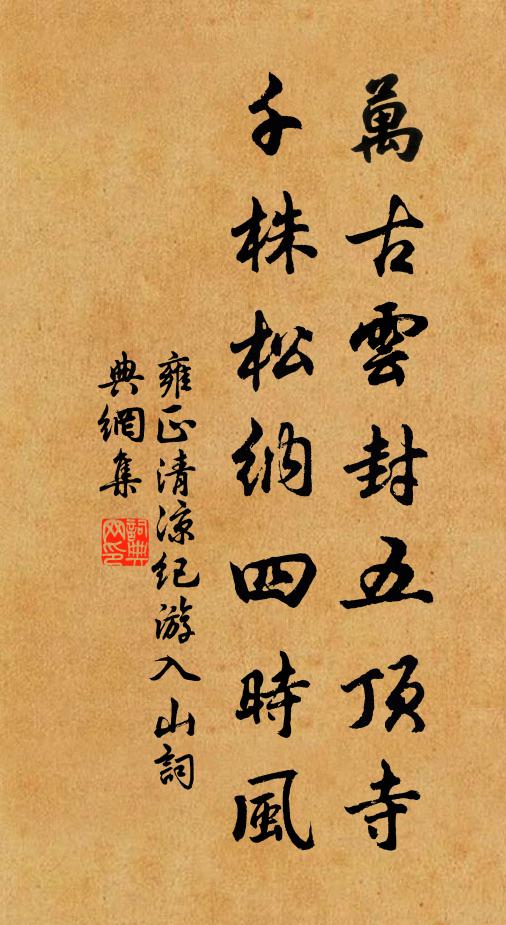 萬古雲封五頂寺
千株松納四時風
雍正清涼紀游入山詞
典網集
詞典網印